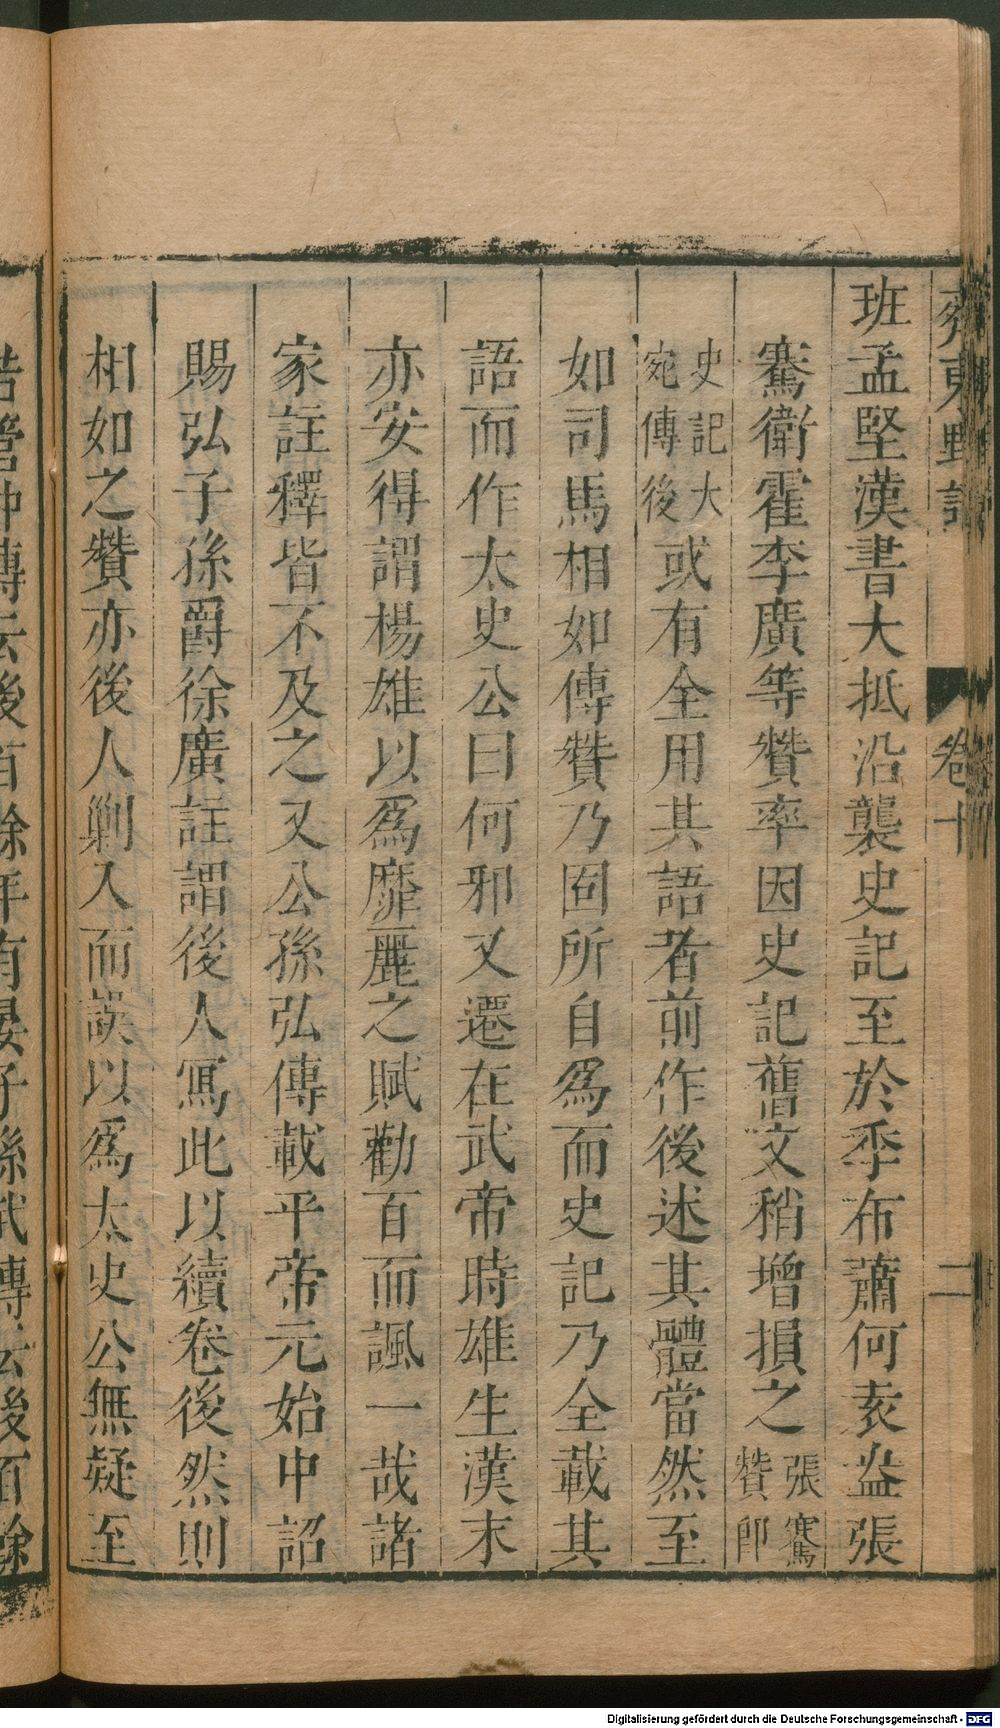 齊東野語 卷十 二
班孟堅漢書大抵沿襲史記至於季布蕭何袁盎張
騫衛霍李廣等贊率因史記舊文稍增損之張騫贊即
史記大宛傳後或有全用其語者前作後述其體當然至
如司馬相如傳贊乃固所自為而史記乃全載其
語而作太史公曰何邪又遷在武帝時雄生漢末
亦安得謂楊雄以為靡麗之賦勸百而諷一哉諸
家註釋皆不及之又公孫弘傳載平帝元始中詔
賜弘子孫爵徐廣註謂後人寫此以續卷後然則
相如之贊亦後人剿入而誤以為太史公無疑至
若管仲傳云後百餘年有晏子孫武傳云後百餘
Digitalisierung gefördert durch die Deutsche Forschungsgemeinschaft - DFG